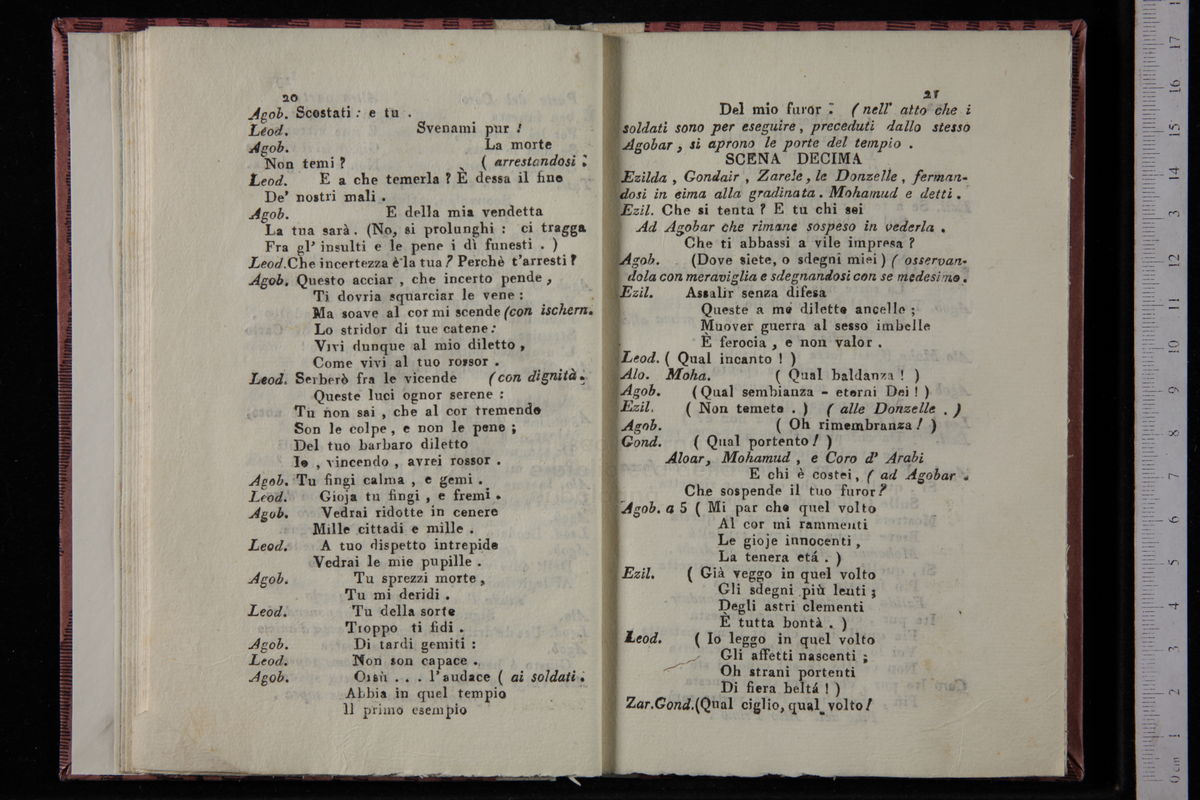 20
Agob. Scostati : e tu .
Leod. Svenami pur !
Agob. La morte
Non temi ? ( arrestandosi .
Leod. E a che temerla ? È dessa il fine
De' nostri mali .
Agob. E della mia vendetta
La tua sarà . (No, si prolunghi : ci tragga
Fra gl' insulti e le pene i dì funesti . )
Leod. Che incertezza è la tua ? Perchè t'arresti ?
Agob. Questo acciar , che incerto pende ,
Ti dovria squarciar le vene :
Ma soave al cor mi scende (con ischern.
Lo stridor di tue catene :
Vivi dunque al mio diletto ,
Come vivi al tuo rossor .
Leod. Serberò fra le vicende (con dignità .
Queste luci ognor serene :
Tu non sai , che al cor tremende
Son le colpe , e non le pene ;
Del tuo barbaro diletto
Io , vincendo , avrei rossor .
Agob. Tu fingi calma , e gemi .
Leod. Gioja tu fingi , e fremi .
Agob. Vedrai ridotte in cenere
Mille cittadi e mille .
Leod. A tuo dispetto intrepide
Vedrai le mie pupille .
Agob. Tu sprezzi morte ,
Tu mi deridi .
Leod. Tu della sorte
Troppo ti fidi .
Agob. Di tardi gemiti :
Leod. Non son capace .
Agob. Orsù . . . l'audace ( ai soldati .
Abbia in quel tempio
Il primo esempio
21
Del mio furor . ( nell' atto che i
soldati sono per eseguire , preceduti dallo stesso
Agobar , si aprono le porte del tempio .
SCENA DECIMA
Ezilda , Gondair , Zarele, le Donzelle , ferman-
dosi in cima alla gradinata . Mohamud e detti .
Ezil. Che si tenta ? E tu chi sei
Ad Agobar che rimane sospeso in vederla .
Che ti abbassi a vile impresa ?
Agob. (Dove siete, o sdegni miei ) ( osservan-
dola con meraviglia e sdegnandosi con se medesimo .
Ezil. Assalir senza difesa
Queste a me dilette ancelle ;
Muover guerra al sesso imbelle
È ferocia , e non valor .
Leod. ( Qual incanto ! )
Alo. Moha. ( Qual baldanza ! )
Agob. (Qual sembianza - eterni Dei ! )
Ezil. ( Non temete . ) ( alle Donzelle . )
Agob. ( Oh rimembranza ! )
Gond. ( Qual portento ! )
Aloar, Mohamud , e Coro d' Arabi
E chi è costei, ( ad Agobar .
Che sospende il tuo furor ?
Agob. a 5 ( Mi par che quel volto
Al cor mi rammenti
Le gioje innocenti ,
La tenera etá . )
Ezil. ( Già veggo in quel volto
Gli sdegni più lenti ;
Degli astri clementi
È tutta bontà . )
Leod. ( Io leggo in quel volto
Gli affetti nascenti ;
Oh strani portenti
Di fiera beltá ! )
Zar. Gond. (Qual ciglio, qual volto !